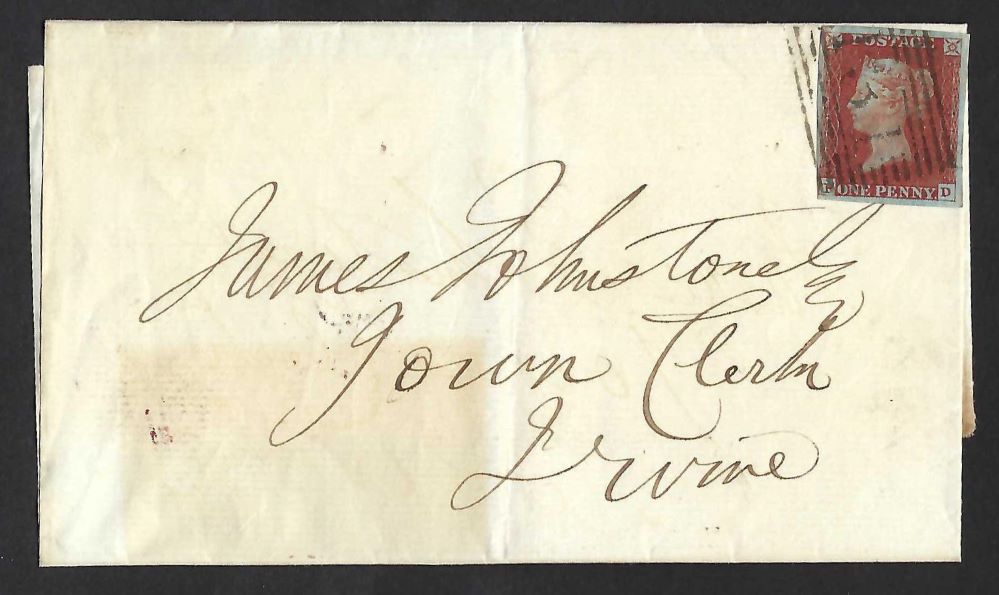 POSTAGE
ONE PENNY. D
James Johnstone Esqr
Town Clerk
Irvine